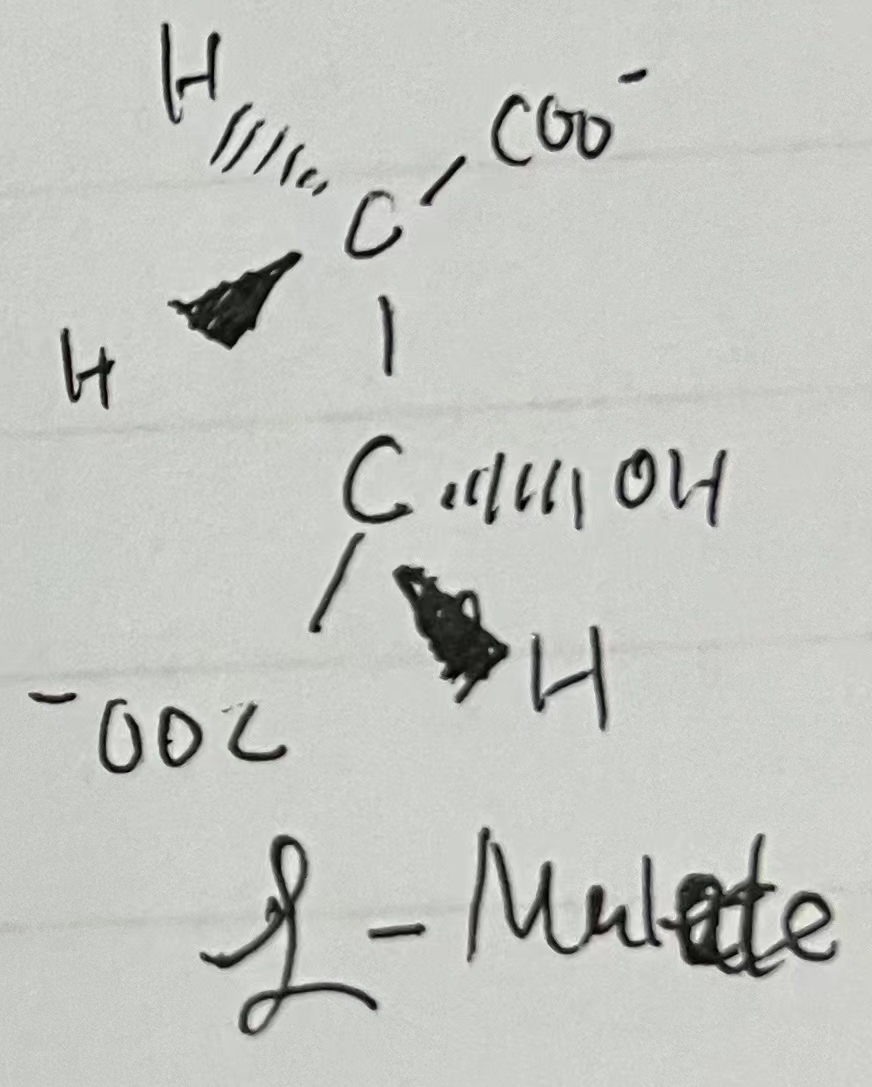 H COO⁻
C
H
C OH
H
⁻OOC
L - Malate